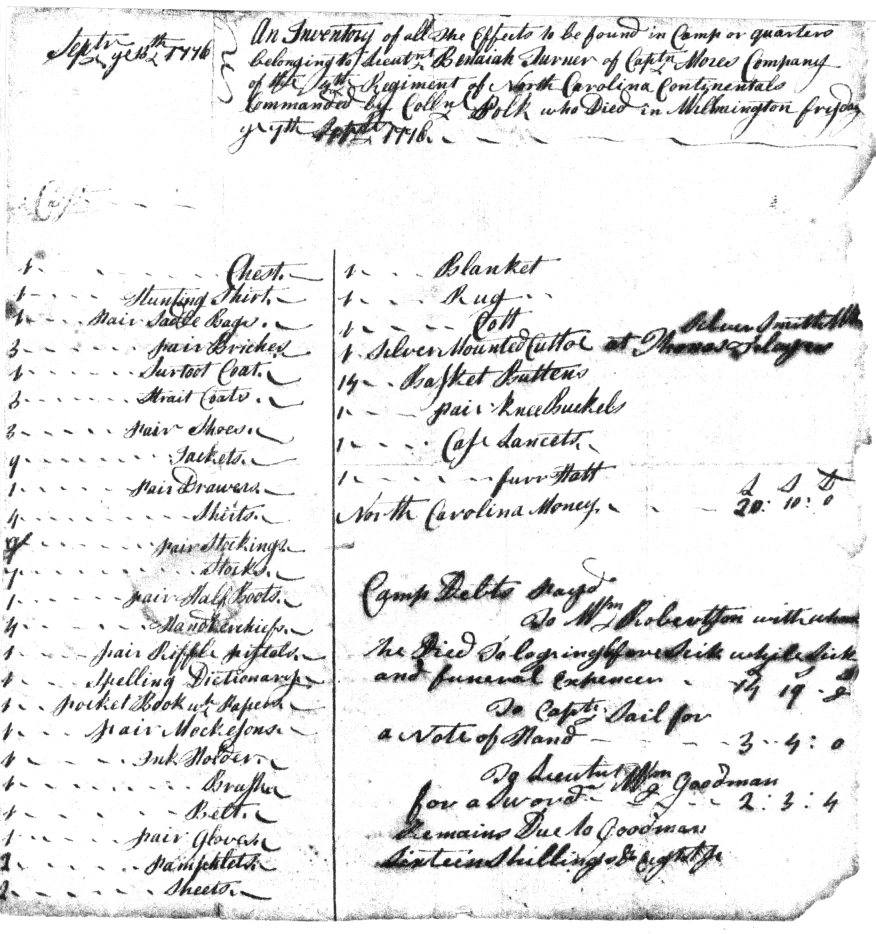 Septr ye 13th 1776
An Inventory of all the Effects to be found in Camp or quarters
belonging to Lieutnt Benaiah Turner of Captn Mores Company
of the 4th Regiment of North Carolina Continentals
Commanded by Colln Polk who Died in Wilmington fryday
ye 7th Septr 1776.
1 Chest.
1 Hunting Shirt.
1 Pair Sadle Bags.
3 pair Briches
1 Surtoot Coat.
3 Strait Coats.
3 pair Shoes.
9 Jackets.
1 Pair Drawers.
4 Shirts.
pair Stockings
7 Stocks.
1 pair Half Boots.
4 Handkerchiefs.
1 pair Riffle pistols.
1 Spelling Dictionary
1 pocket Book wt Papers.
1 pair Mockesons.
1 Ink Holder.
1 Brushe
1 Belt.
1 pair Gloves.
2 Pamphlets.
2 Sheets.
1 Blanket
1 Rug
1 Cott
Silver Smith
1 Silver Mounted Cuttoe at Thomas
14 Basket Buttens
1 pair Knee Buckels
1 Case Lancets.
1 furr Hatt
L S D
North Carolina Money. 20: 10: 0
Camp Debts payd
To Wm Robertson with whom
he Died To loging before Sick while Sick
and funeral Expences 14 19 - 8
To Captn Sail for
a Note of Hand 3 - 4: 0
To Lieutnt Wm Goodman
for a Sword 2: 3: 4
Remains Due to Goodman
Sixteen Shillings & Eight